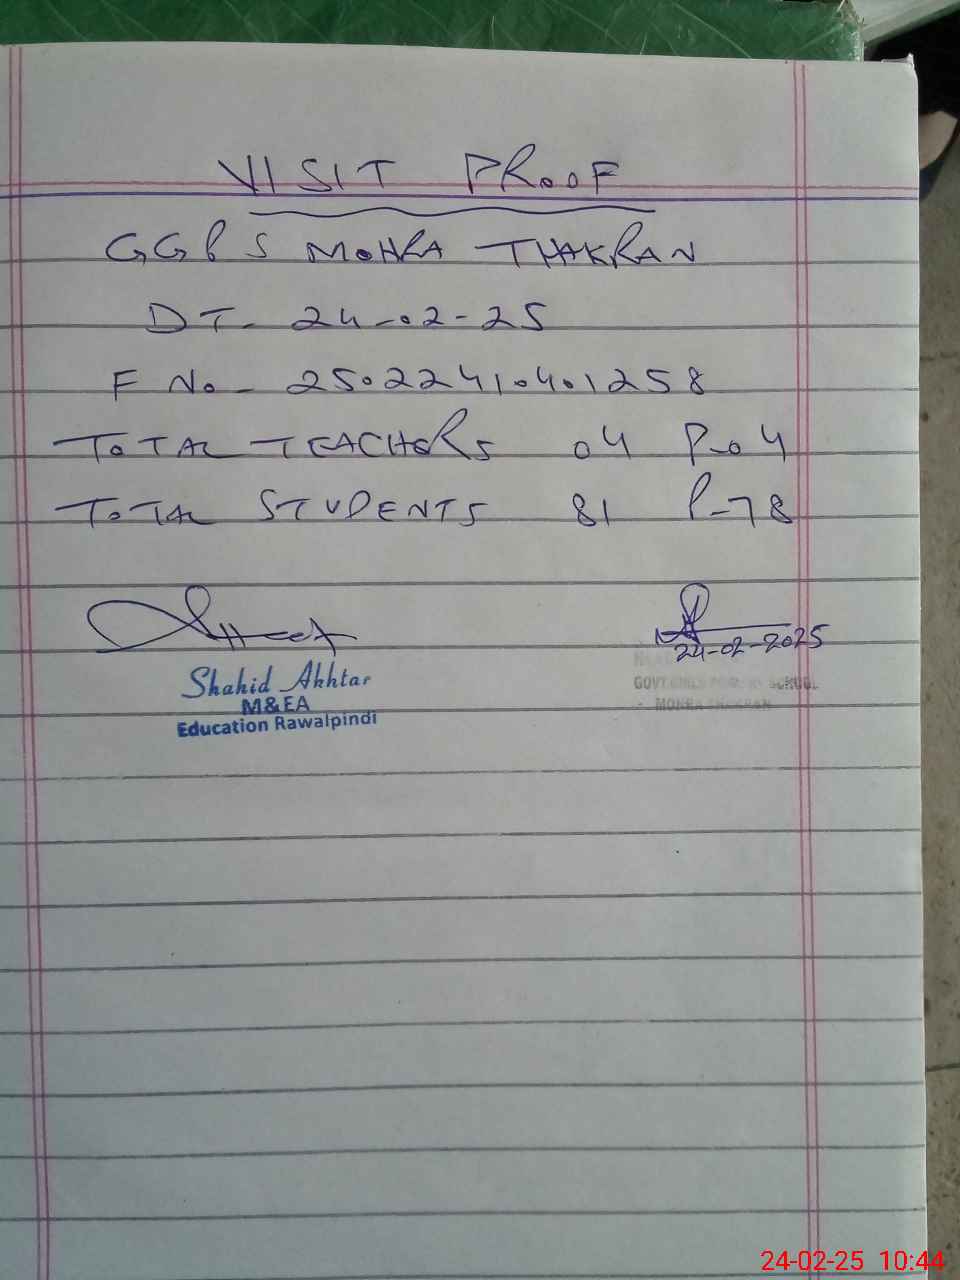 VISIT PROOF
GGPS MOHRA THAKRAN
DT- 24-02-25
F No- 25022410401258
TOTAL TEACHERS 04 P-04
TOTAL STUDENTS 81 P-78
24-02-2025
Shahid Akhtar
M&EA
Education Rawalpindi
GOVT. GIRLS PRIMARY SCHOOL
MOHRA THAKRAN
24-02-25 10:44